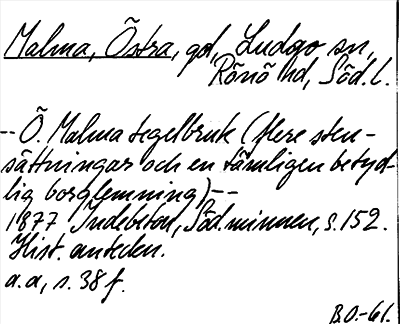 Malma, Östra, gd, Ludgo sn,
Rönö hd, Söd. l.
-- Ö. Malma tegelbruk (flere sten-
sättningar och en tämligen betyd-
lig borglemning) --
1877 Indebetou, Söd. minnen, s. 152.
Hist. anteckn.
a.a, s. 38 f.
B.O.-61.